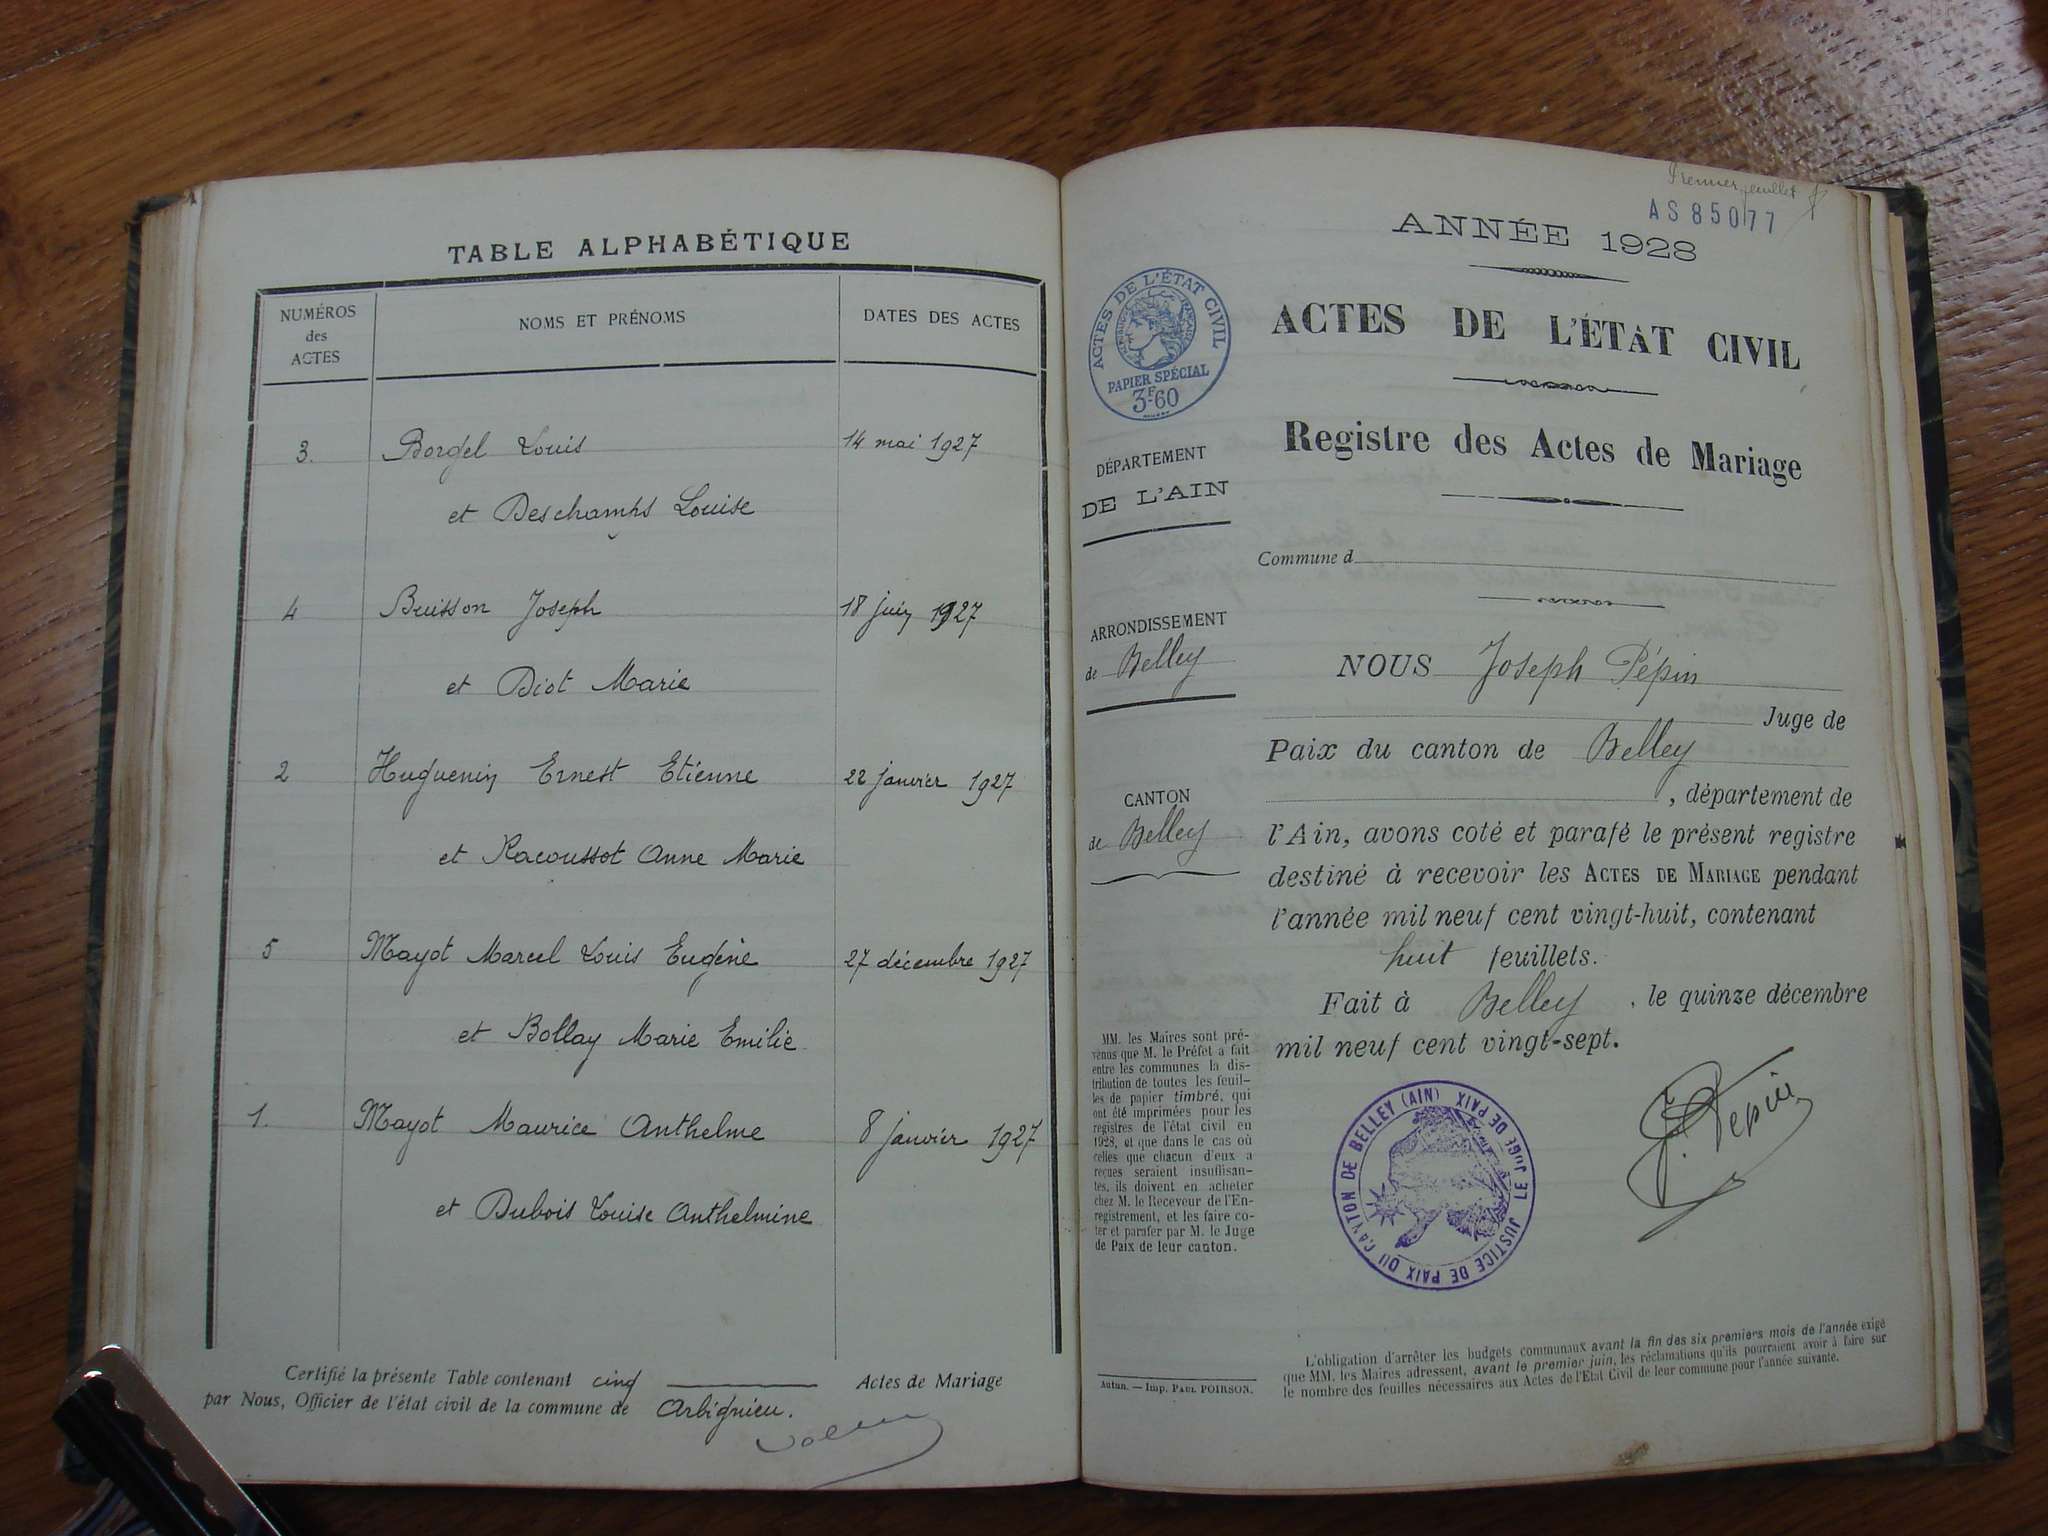 TABLE ALPHABÉTIQUE
NUMÉROS des ACTES
NOMS ET PRÉNOMS
DATES DES ACTES
3. Borgel Louis 14 mai 1927
et Deschamps Louise
4 Buisson Joseph 18 juin 1927
et Diot Marie
2 Huguenin Ernest Etienne 22 janvier 1927
et Racoussot Anne Marie
5 Mayot Marcel Louis Eugène 27 décembre 1927
et Bollay Marie Emilie
1. Mayot Maurice Anthelme 8 janvier 1927
et Dubois Louise Anthelmine
Certifié la présente Table contenant cinq Actes de Mariage
par Nous, Officier de l'état civil de la commune de Arbignieu.
Premier feuillet
AS 85077
ANNÉE 1928
ACTES DE L'ÉTAT CIVIL
PAPIER SPÉCIAL
3F.60
ACTES DE L'ÉTAT CIVIL
Registre des Actes de Mariage
DÉPARTEMENT
DE L'AIN
Commune d
ARRONDISSEMENT
de Belley
CANTON
de Belley
NOUS Joseph Pépin
Juge de
Paix du canton de Belley
, département de
l'Ain, avons coté et parafé le présent registre
destiné à recevoir les ACTES DE MARIAGE pendant
l'année mil neuf cent vingt-huit, contenant
huit feuillets.
Fait à Belley, le quinze décembre
mil neuf cent vingt-sept.
J. Pépin
JUSTICE DE PAIX DU CANTON DE BELLEY (AIN)
LE JUGE DE PAIX
MM. les Maires sont pré-
venus que M. le Préfet a fait
entre les communes la dis-
tribution de toutes les feuil-
les de papier timbré, qui
ont été imprimées pour les
registres de l'état civil en
1928, et que dans le cas où
celles que chacun d'eux a
reçues seraient insuffisan-
tes, ils doivent en acheter
chez M. le Receveur de l'En-
registrement, et les faire co-
ter et parafer par M. le Juge
de Paix de leur canton.
Autun. — Imp. PAUL POIRSON.
L'obligation d'arrêter les budgets communaux avant la fin des six premiers mois de l'année exige
que MM. les Maires adressent, avant le premier juin, les réclamations qu'ils pourraient avoir à faire sur
le nombre des feuilles nécessaires aux Actes de l'Etat Civil de leur commune pour l'année suivante.